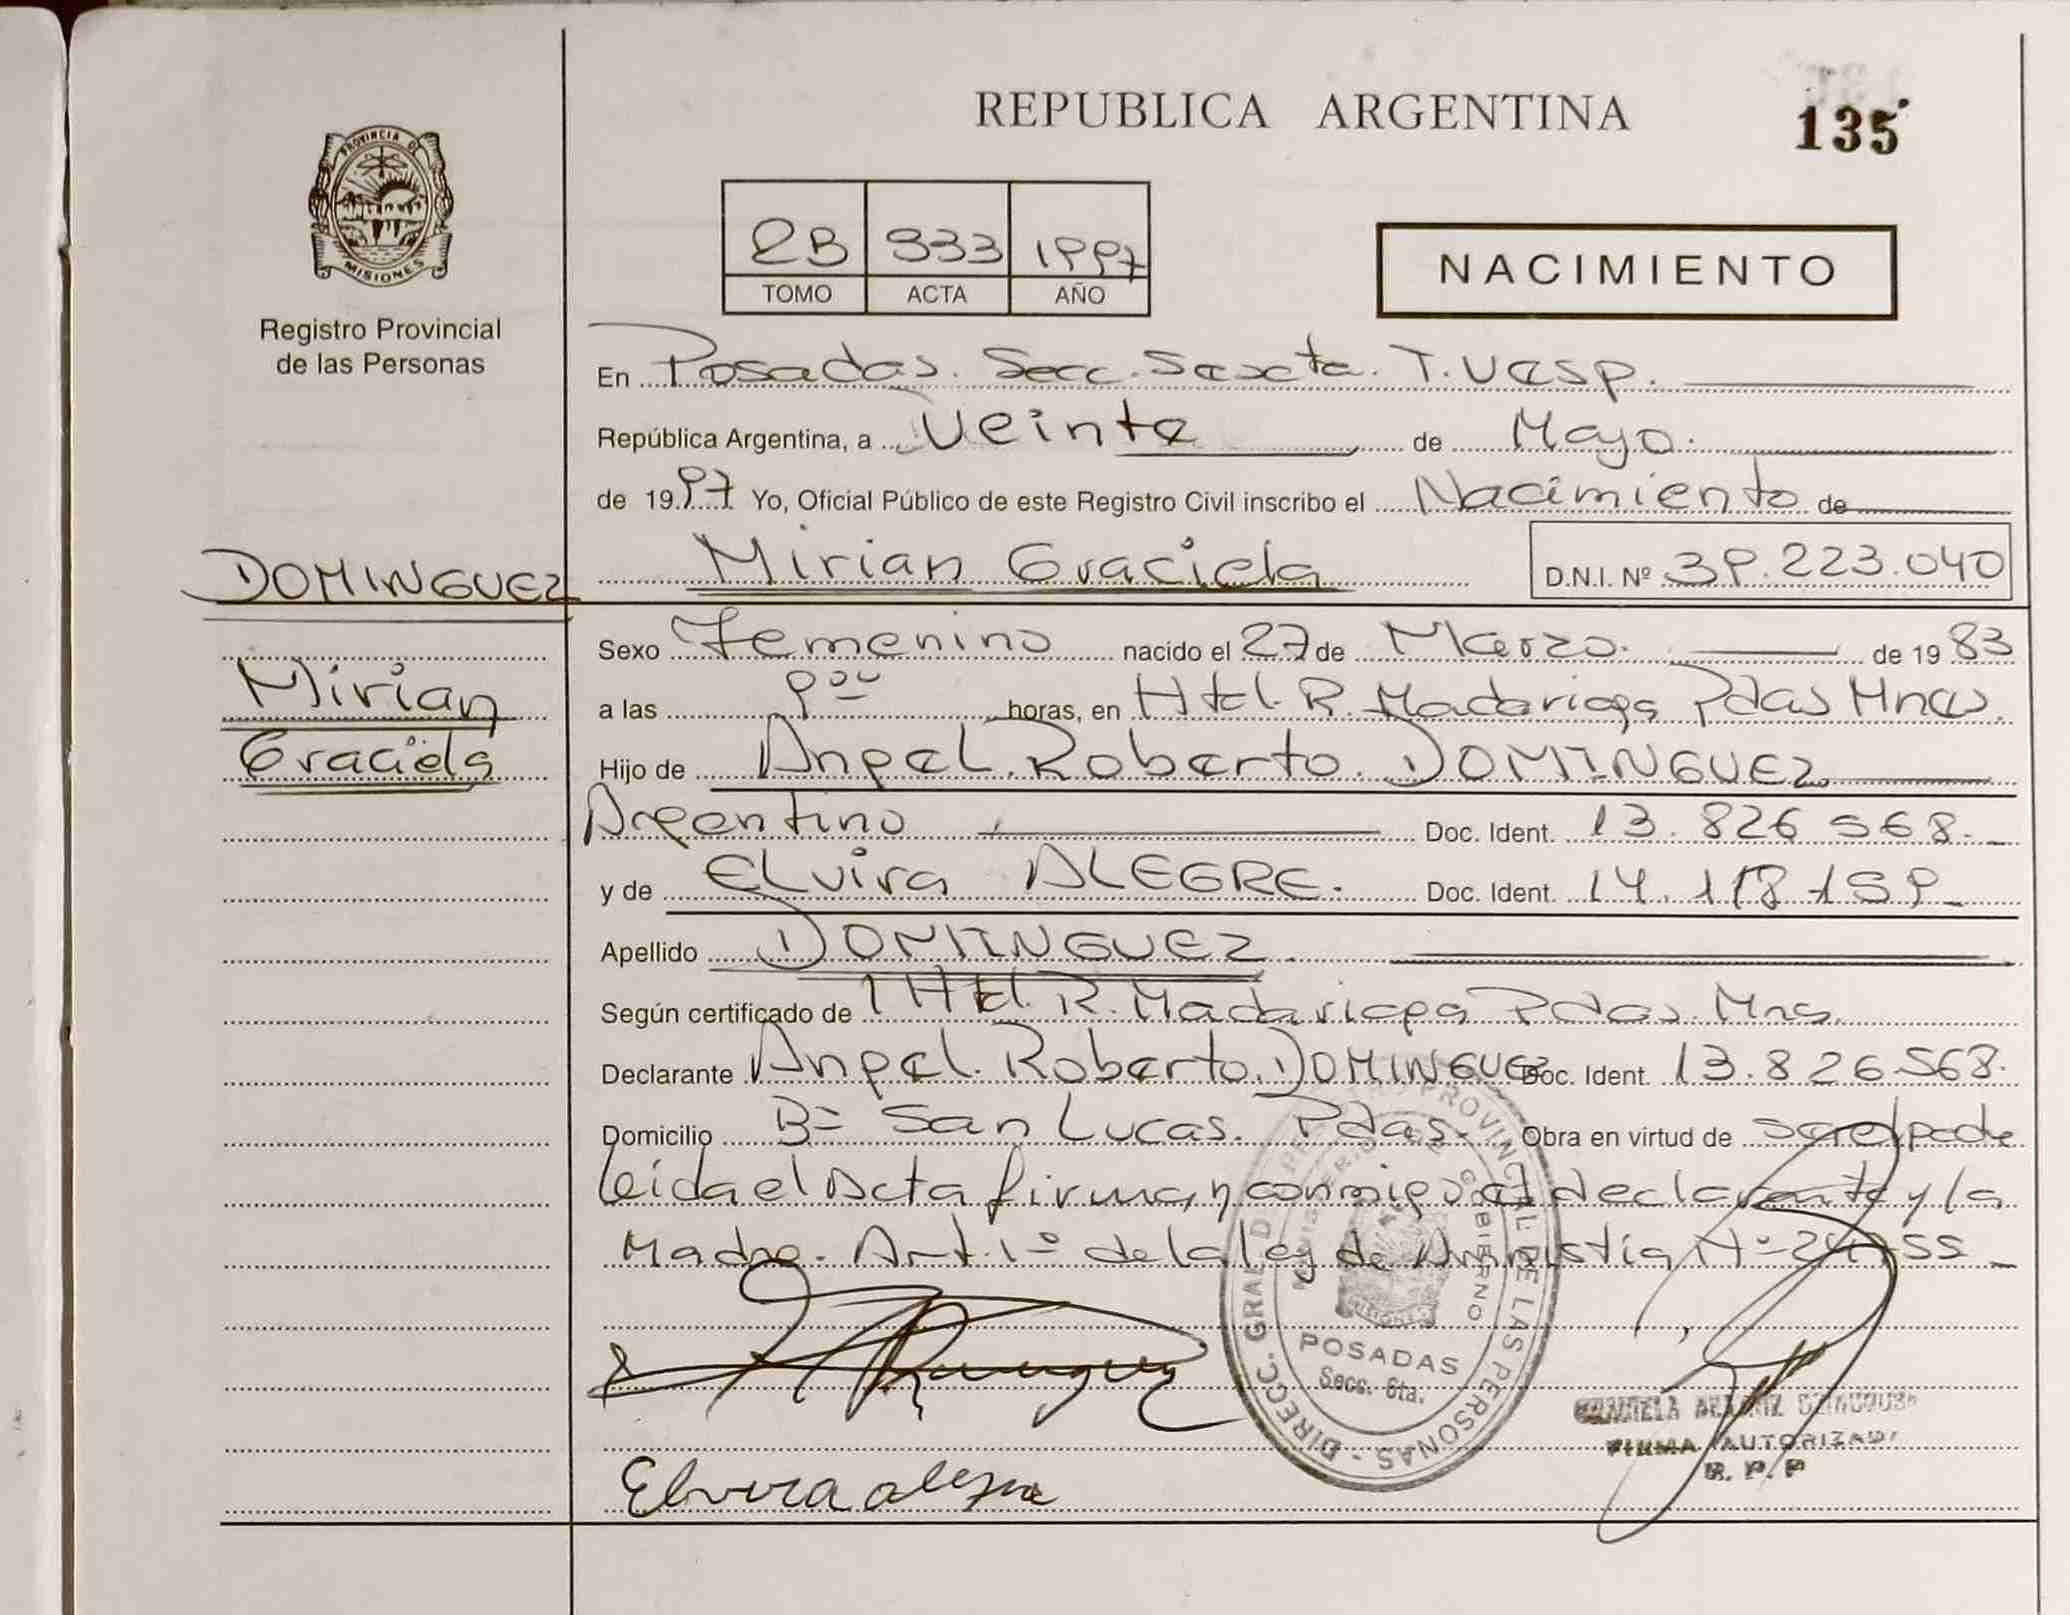 REPUBLICA ARGENTINA
135
PROVINCIA DE
MISIONES
Registro Provincial
de las Personas
2B 933 1997
TOMO ACTA AÑO
NACIMIENTO
En Posadas. Secc. Sexta. T.
República Argentina, a Veinte de Mayo.
de 1997 Yo, Oficial Público de este Registro Civil inscribo el Nacimiento de
DOMINGUEZ
Mirian Graciela
D.N.I. Nº 39.223.040
Mirian
Graciela
Sexo Femenino nacido el 27 de Marzo. de 1983
a las 9 horas, en Htal. R. Madariaga Pdas Mnes.
Hijo de Angel Roberto DOMINGUEZ
Argentino Doc. Ident. 13.826.568.
y de ELvira ALEGRE. Doc. Ident. 14.118.159
Apellido DOMINGUEZ
Según certificado de Htal. R. Madariaga Pdas. Mns.
Declarante Angel Roberto DOMINGUEZ Doc. Ident. 13.826.568.
Domicilio Bº San Lucas. Pdas. Obra en virtud de
leida el Acta firman conmigo el declarante y la
Madre. Art. 1º de la ley de Amnistia Nº
DIRECC. GRAL. DEL REG. PROVINCIAL DE LAS PERSONAS
GOBIERNO
POSADAS
Secc. 6ta.
FIRMA AUTORIZADA
R. P. P
Elvira alegre